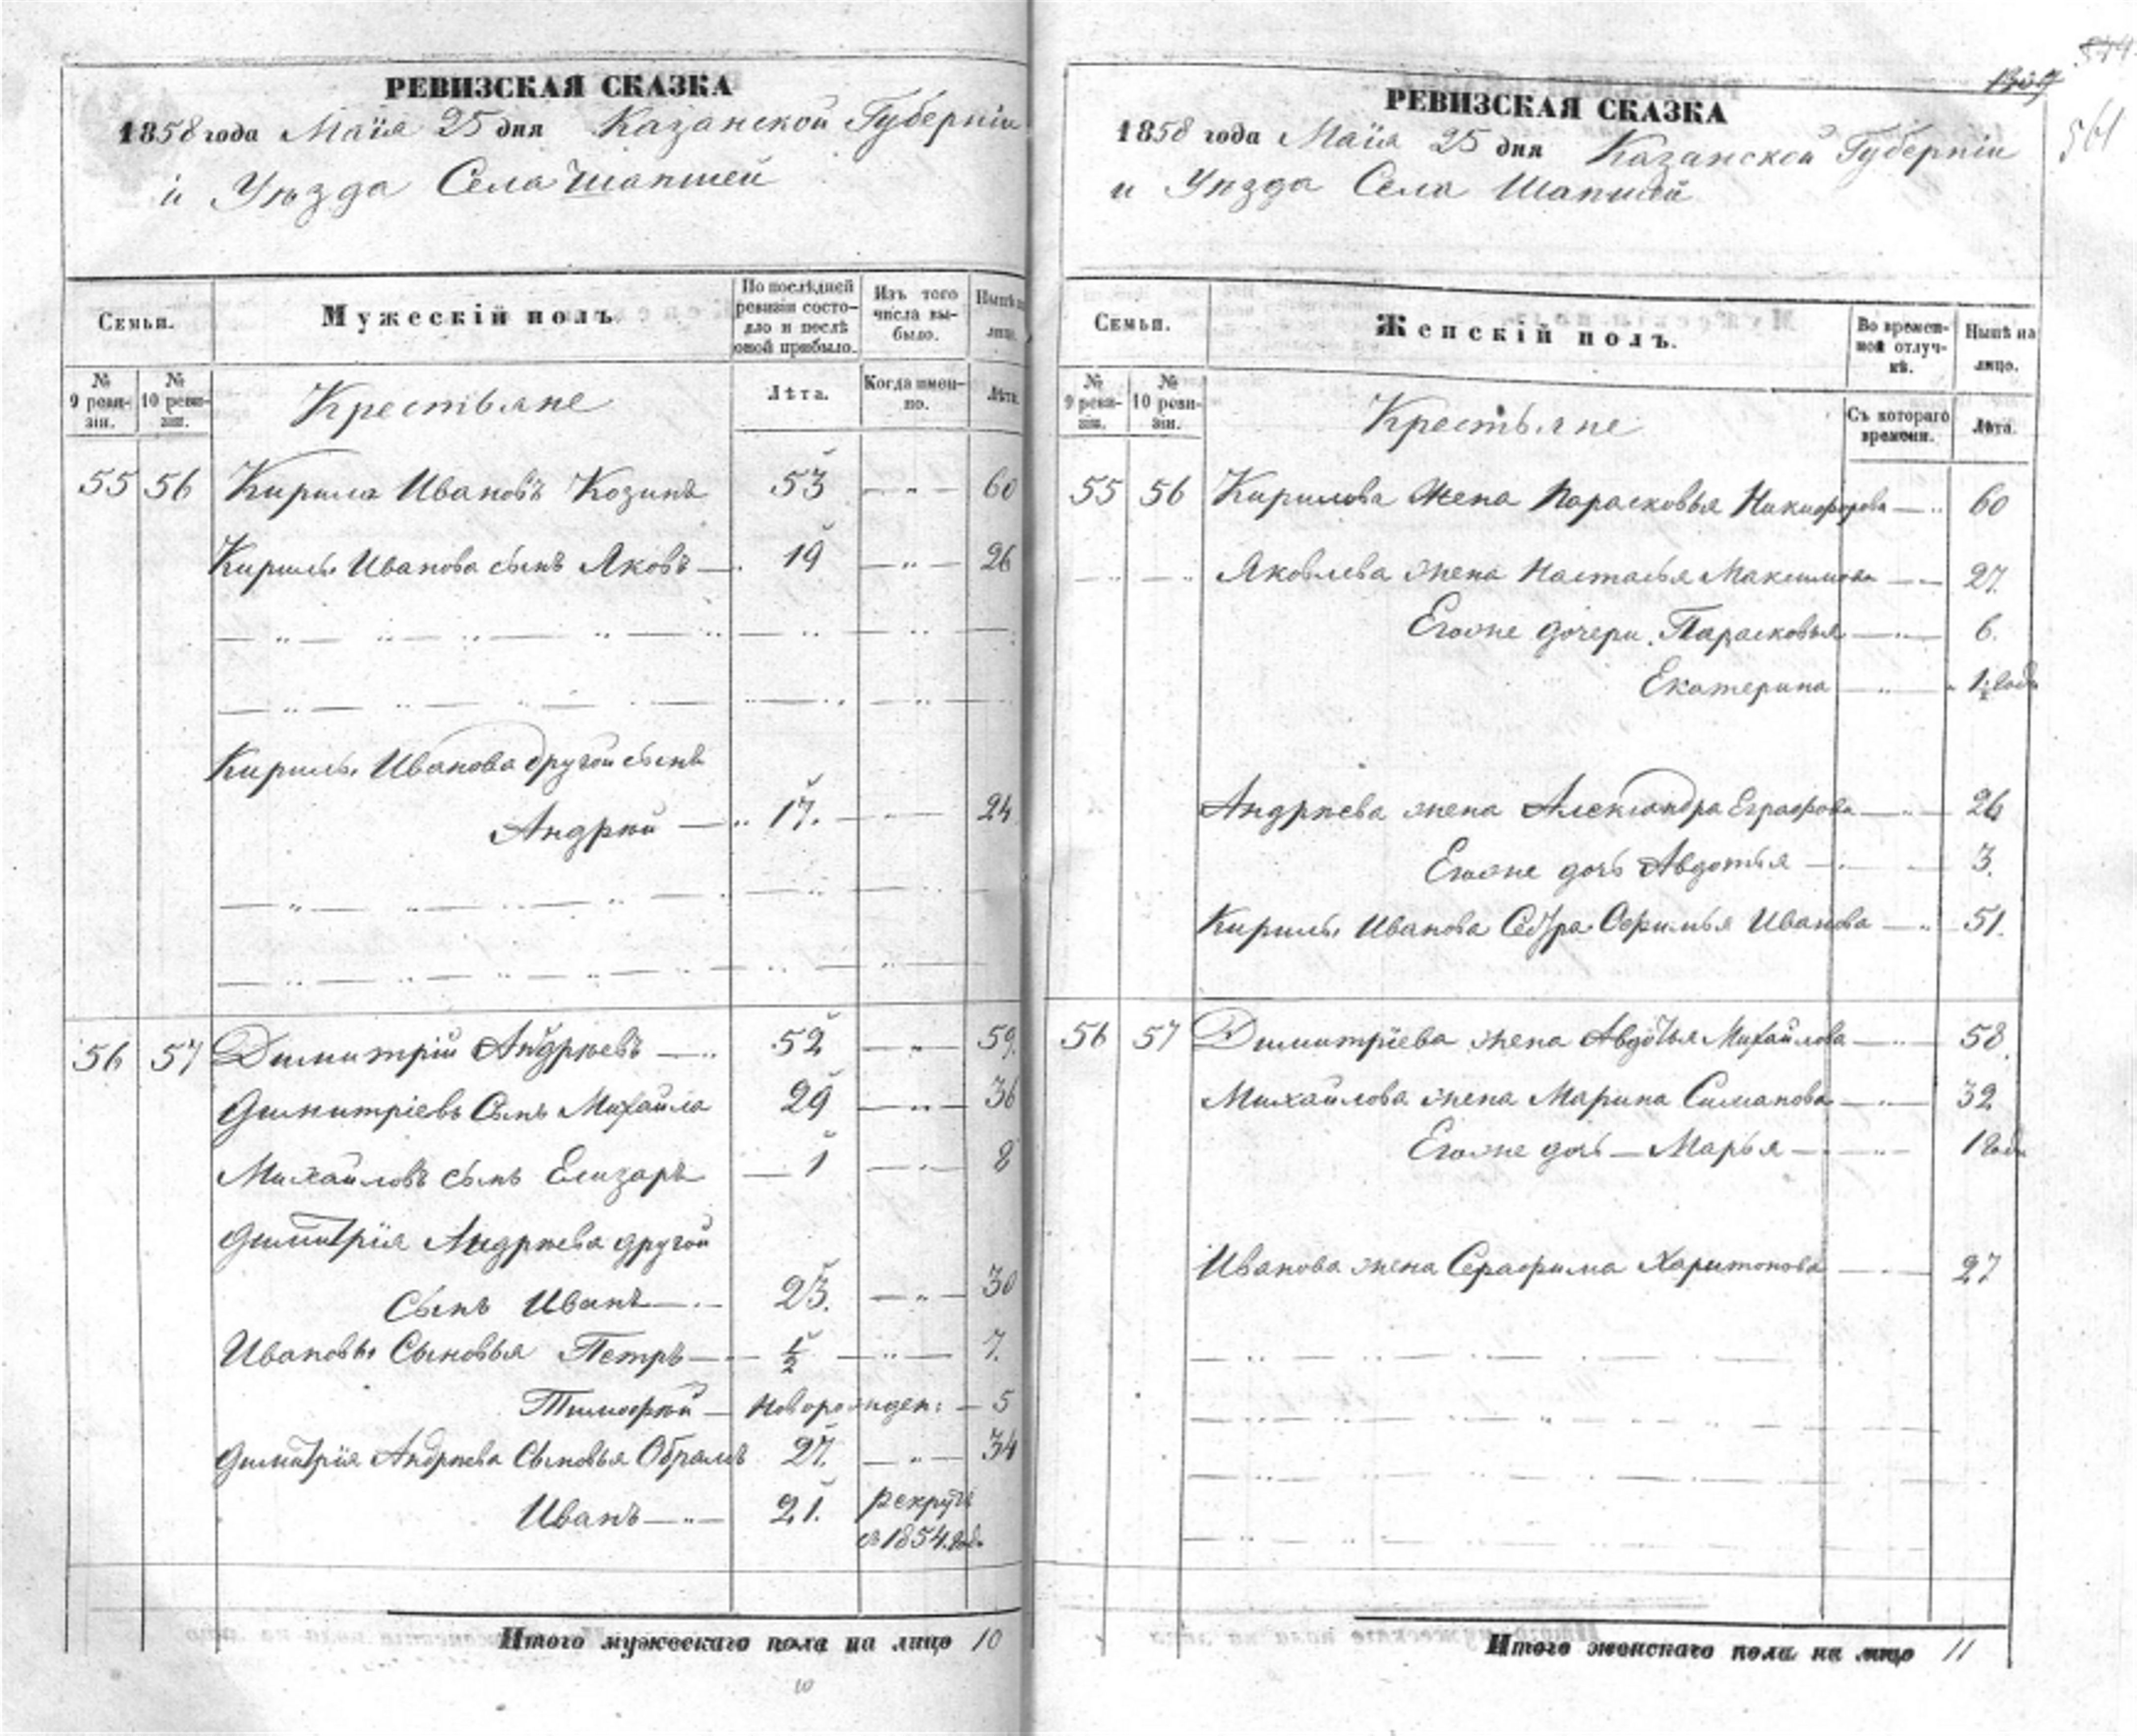 РЕВИЗСКАЯ СКАЗКА
1858 года Маія 25 дня Казанской Губерніи
и Уѣзда Села Шапшей
Семьи.
Мужескій полъ
По послѣдней ревизіи состояло и послѣ оной прибыло.
Изъ того числа выбыло.
Нынѣ на лицо.
№ 9 ревизіи.
№ 10 ревизіи.
Крестьяне
Лѣта.
Когда именно.
Лѣта.
55 56 Кирила Ивановъ Козинъ 53 — „ — 60
Кирилы Иванова сынъ Яковъ — 19 — „ — 26
Кирилы Иванова другой сынъ
Андрей — 17. — „ — 24
56 57 Димитрій Андреевъ — 52 — „ — 59.
Димитріевъ Сынъ Михайла 29 — „ — 36
Михайловъ сынъ Елизаръ — 1 — „ — 8
Димитрія Андреева другой
Сынъ Иванъ — 23. — „ — 30
Ивановы Сыновья Петръ — 1/2 — „ — 7.
Тимофей — новорожден: — 5
Димитрія Андреева Сыновья Обрамъ 27. — „ — 34
Иванъ — „ — 21. рекрутъ
съ 1854. года
Итого мужескаго пола на лицо 10
10
РЕВИЗСКАЯ СКАЗКА
561
1858 года Маія 25 дня Казанской Губерніи
и Уѣзда Села Шапшей
Семьи.
Женскій полъ.
Во временной отлучкѣ.
Нынѣ на лицо.
№ 9 ревизіи.
№ 10 ревизіи.
Крестьяне
Съ котораго времени.
Лѣта.
55 56 Кирилова Жена Парасковья Никифорова — „ 60
Яковлева жена Настасья Максимова — 27.
Егоже дочери Парасковья — „ — 6.
Екатерина — „ — 1 1/2 года
Андреева жена Александра Еграфова — „ — 26
Егоже дочь Авдотья — 3.
Кирилы Иванова Сестра Офимья Иванова — „ 51.
56 57 Димитріева жена Авдотья Михайлова — „ — 58.
Михайлова жена Марина Симанова — „ — 32
Егоже дочь — Марья — „ — 1 года
Иванова жена Серафима Харитонова — 27
Итого женскаго пола на лицо 11